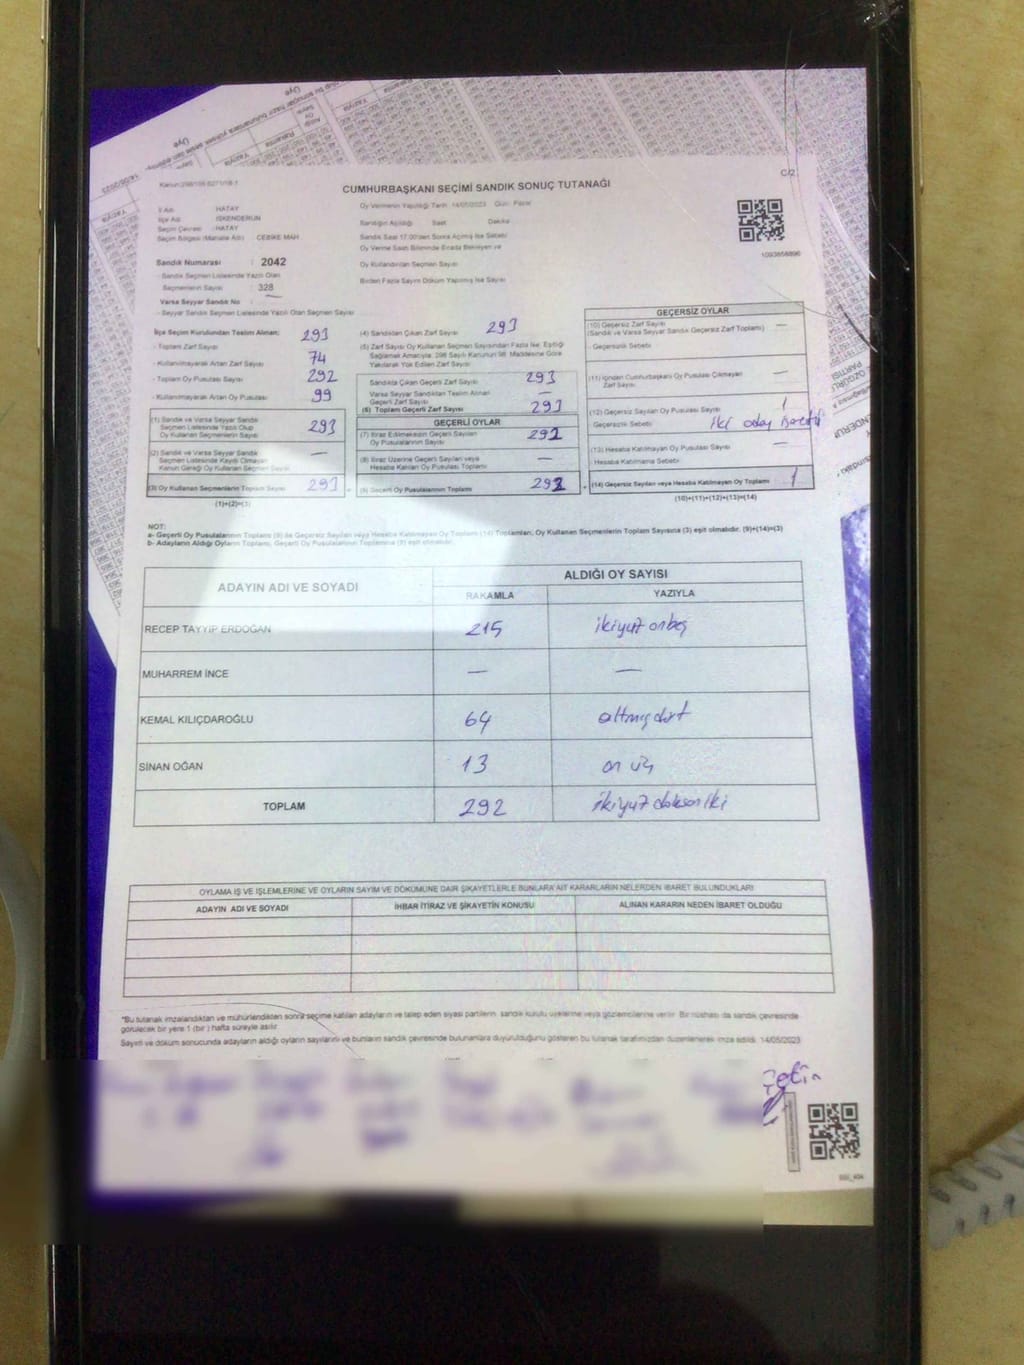 CUMHURBAŞKANI SEÇİMİ SANDIK SONUÇ TUTANAĞI
C/2
İl Adı : HATAY
İlçe Adı : İSKENDERUN
Seçim Çevresi : HATAY
Seçim Bölgesi (Mahalle Adı) CEBİKE MAH
Sandık Numarası : 2042
- Sandık Seçmen Listesinde Yazılı Olan
Seçmenlerin Sayısı : 328
Varsa Seyyar Sandık No
- Seyyar Sandık Seçmen Listesinde Yazılı Olan Seçmen Sayısı
Oy Vermenin Yapıldığı Tarih : 14/05/2023 Gün: Pazar
Sandığın Açıldığı Saat Dakika
Sandık Saat 17.00'den Sonra Açılmış İse Sebebi
Oy Verme Saati Bitiminde Sırada Bekleyen ve
Oy Kullandırılan Seçmen Sayısı
Birden Fazla Sayım Döküm Yapılmış İse Sayısı
1093858896
İlçe Seçim Kurulundan Teslim Alınan:
- Toplam Zarf Sayısı 293
- Kullanılmayarak Artan Zarf Sayısı 74
- Toplam Oy Pusulası Sayısı 292
- Kullanılmayarak Artan Oy Pusulası 99
(1) Sandık ve Varsa Seyyar Sandık
Seçmen Listesinde Yazılı Olup
Oy Kullanan Seçmenlerin Sayısı 293
(2) Sandık ve Varsa Seyyar Sandık
Seçmen Listesinde Kayıtlı Olmayan
Kanun Gereği Oy Kullanan Seçmen Sayısı —
(3) Oy Kullanan Seçmenlerin Toplam Sayısı 293
(1)+(2)=(3)
(4) Sandıktan Çıkan Zarf Sayısı 293
(5) Zarf Sayısı Oy Kullanan Seçmen Sayısından Fazla İse; Eşitliği
Sağlamak Amacıyla, 298 Sayılı Kanunun 98. Maddesine Göre
Yakılarak Yok Edilen Zarf Sayısı
Sandıkta Çıkan Geçerli Zarf Sayısı 293
Varsa Seyyar Sandıktan Teslim Alınan
Geçerli Zarf Sayısı —
(6) Toplam Geçerli Zarf Sayısı 293
GEÇERLİ OYLAR
(7) İtiraz Edilmeksizin Geçerli Sayılan
Oy Pusulalarının Sayısı 292
(8) İtiraz Üzerine Geçerli Sayılan veya
Hesaba Katılan Oy Pusulası Toplamı —
(9) Geçerli Oy Pusulalarının Toplamı 292
GEÇERSİZ OYLAR
(10) Geçersiz Zarf Sayısı —
(Sandık ve Varsa Seyyar Sandık Geçersiz Zarf Toplamı)
- Geçersizlik Sebebi
(11) İçinden Cumhurbaşkanı Oy Pusulası Çıkmayan
Zarf Sayısı —
(12) Geçersiz Sayılan Oy Pusulası Sayısı 1
Geçersizlik Sebebi iki aday işaretli
(13) Hesaba Katılmayan Oy Pusulası Sayısı —
Hesaba Katılmama Sebebi
(14) Geçersiz Sayılan veya Hesaba Katılmayan Oy Toplamı 1
(10)+(11)+(12)+(13)=(14)
NOT:
a- Geçerli Oy Pusulalarının Toplamı (9) ile Geçersiz Sayılan veya Hesaba Katılmayan Oy Toplamı (14) Toplamları, Oy Kullanan Seçmenlerin Toplam Sayısına (3) eşit olmalıdır. (9)+(14)=(3)
b- Adayların Aldığı Oyların Toplamı, Geçerli Oy Pusulalarının Toplamına (9) eşit olmalıdır.
ADAYIN ADI VE SOYADI
ALDIĞI OY SAYISI
RAKAMLA YAZIYLA
RECEP TAYYİP ERDOĞAN 215 ikiyüz onbeş
MUHARREM İNCE — —
KEMAL KILIÇDAROĞLU 64 altmışdört
SİNAN OĞAN 13 on üç
TOPLAM 292 ikiyüz doksan iki
OYLAMA İŞ VE İŞLEMLERİNE VE OYLARIN SAYIM VE DÖKÜMÜNE DAİR ŞİKAYETLERLE BUNLARA AİT KARARLARIN NELERDEN İBARET BULUNDUKLARI
ADAYIN ADI VE SOYADI İHBAR İTİRAZ VE ŞİKAYETİN KONUSU ALINAN KARARIN NEDEN İBARET OLDUĞU
*Bu tutanak imzalandıktan ve mühürlendikten sonra seçime katılan adayların ve talep eden siyasi partilerin, sandık kurulu üyelerine veya gözlemcilerine verilir. Bir nüshası da sandık çevresinde
görülecek bir yere 1 (bir) hafta süreyle asılır.
Sayım ve döküm sonucunda adayların aldığı oyların sayılarını ve bunların sandık çevresinde bulunanlara duyurulduğunu gösteren bu tutanak tarafımızdan düzenlenerek imza edildi. 14/05/2023